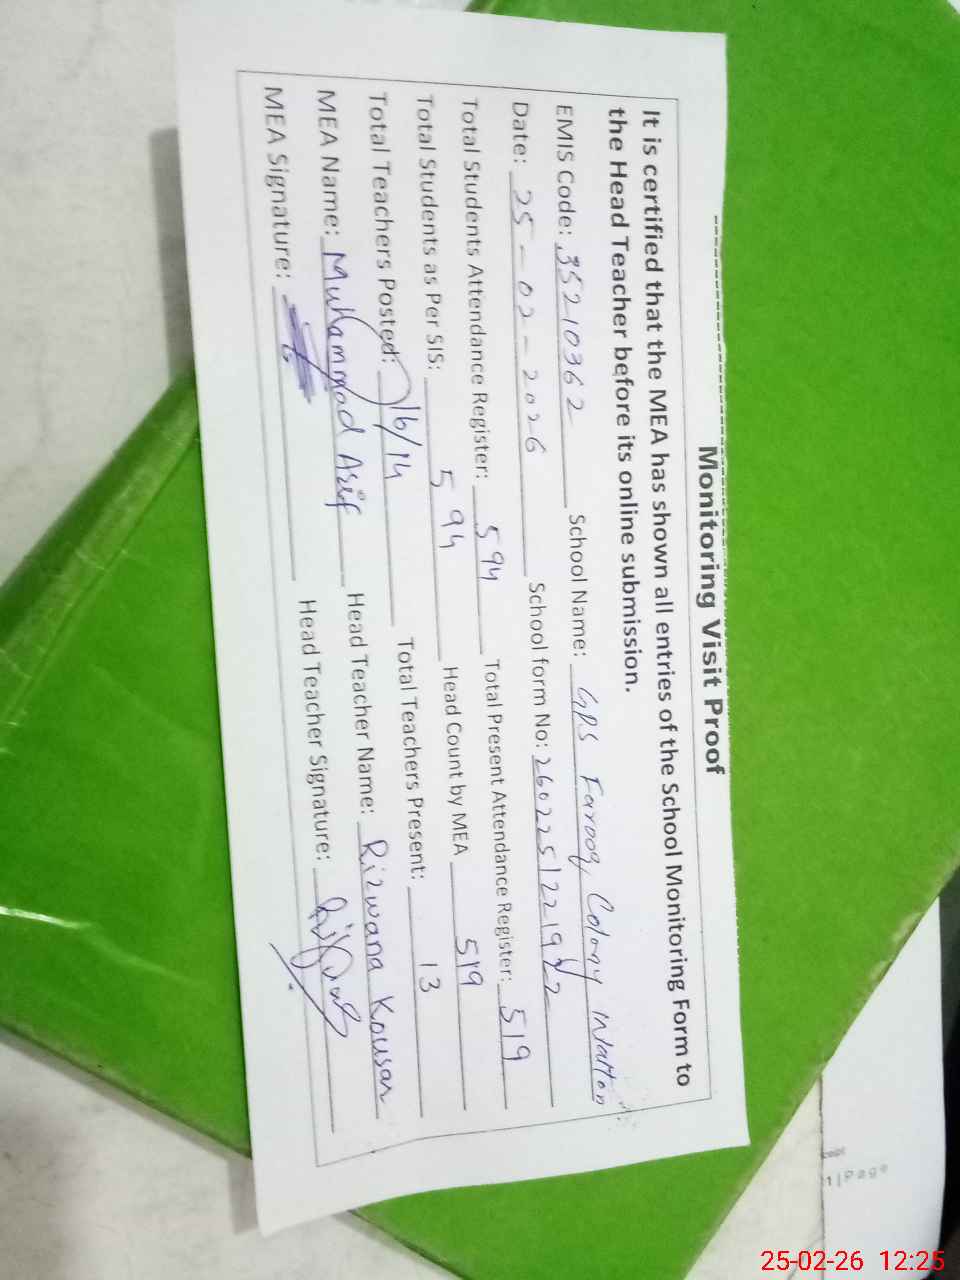 Monitoring Visit Proof
It is certified that the MEA has shown all entries of the School Monitoring Form to
the Head Teacher before its online submission.
EMIS Code: 35210362 School Name: GPS Farooq Colony Walton
Date: 25-02-2026 School form No: 2602251221922
Total Students Attendance Register: 594 Total Present Attendance Register: 519
Total Students as Per SIS: 594 Head Count by MEA 519
Total Teachers Posted: 16/14 Total Teachers Present: 13
MEA Name: Muhammad Asif Head Teacher Name: Rizwana Kousar
MEA Signature: Head Teacher Signature:
1 | Page
25-02-26 12:25